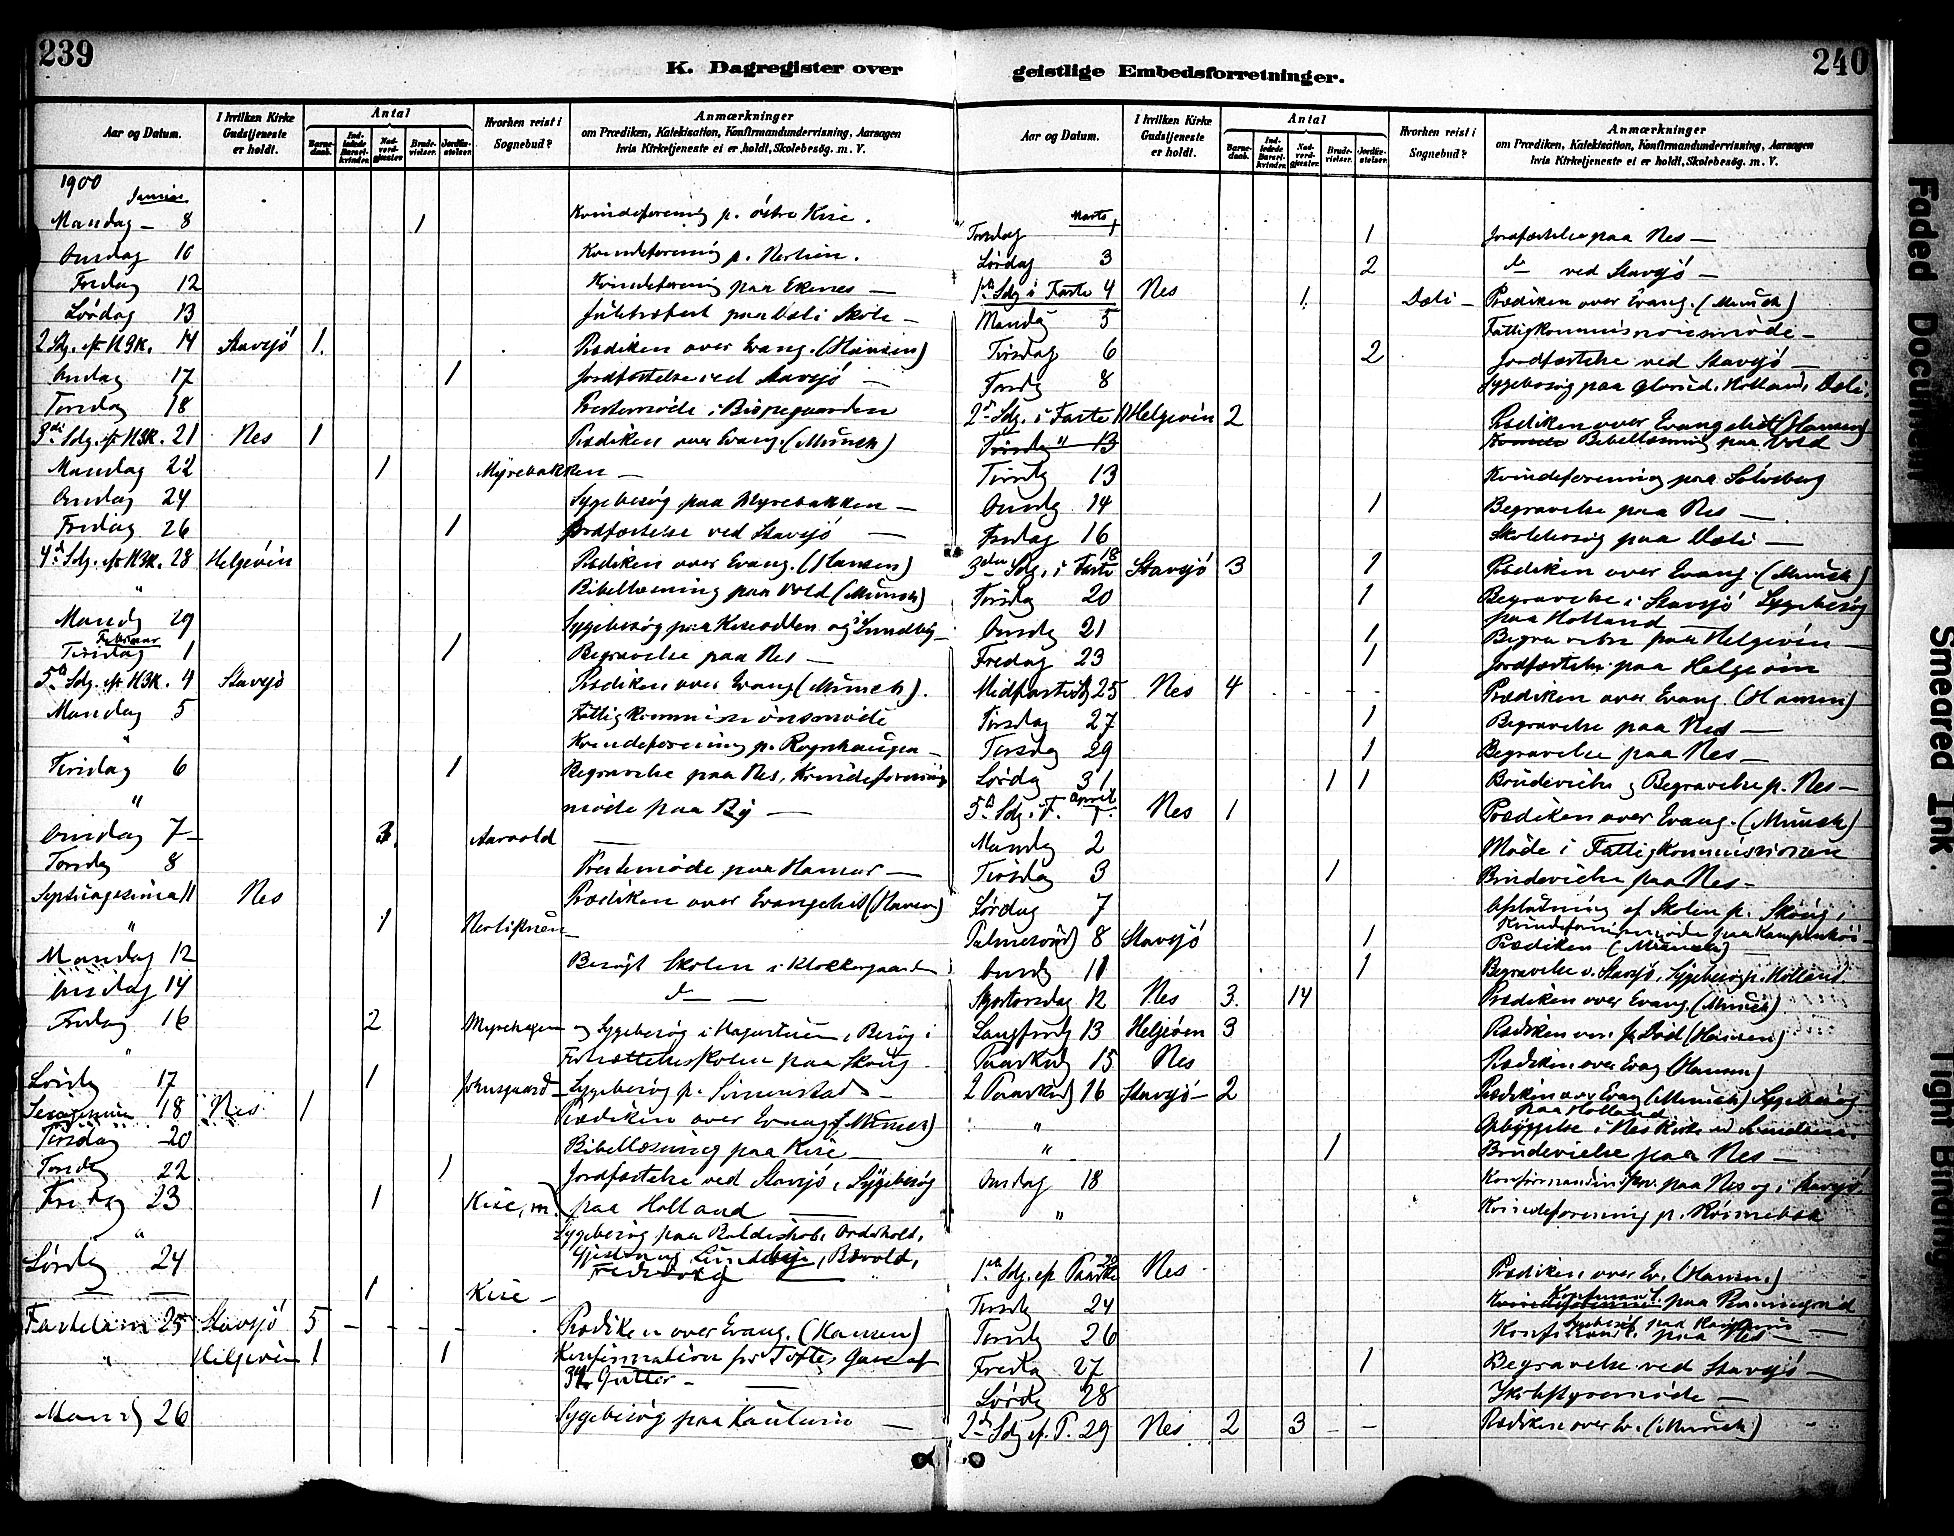 239
K. Dagregister over
Aar og Datum.
I hvilken Kirke Gudstjeneste er holdt.
Antal
Barne-daab.
Ind-ledede Barsel-kvinder.
Nad-verd-gjester
Brude-vielser.
Jordfæ-stelser
Hvorhen reist i Sognebud?
Anmærkninger
om Prædiken, Katekisation, Konfirmandundervisning, Aarsagen
hvis Kirketjeneste ei er holdt, Skolebesøg. m. V.
1900
Januar
Mandag 8 1 Kvindeforening p. østre Kise.
Onsdag 10 Kvindeforening p. Nerlien.
Fredag 12 Kvindeforening paa Ekenes —
Lørdag 13 Juletræfest paa Dæli Skole —
2 Sdg. eft. H3K. 14 Stavsjø 1. Prædiken over Evang. (Hansen)
Onsdag 17 1 Jordfæstelse ved Stavsjø —
Torsdag 18 Prestemøde i Bispegaarden
3di Sdg. eft H3K. 21 Nes 1 Prædiken over Evang. (Münch)
Mandag 22 1 Myrebakken —
Onsdag 24 Sygebesøg paa Myrebakken —
Fredag 26 1 Jordfæstelse ved Stavsjø —
4d. Sdg. eft H3K. 28 Helgeøen Prædiken over Evang. (Hansen)
" Bibellæsning paa Vold (Münch)
Mandg 29 Sygebesøg paa og Sundby
Februar
Tirsdag 1 1 Begravelse paa Nes —
5te Sdg. eft H3K. 4 Stavsjø Prædiken over Evang (Münch).
Mandag 5 Fattigkommissionsmøde
" Kvindeforening p. Rognhaugen —
Tirsdag 6 1 Begravelse paa Nes, Kvindeforenings
" møde paa By —
Onsdag 7 — 3. Aarvold —
Torsdg 8 Prestemøde paa Hamar —
Septuagesima 11 Nes Prædiken over Evangeliet (Hansen)
" 1
Mandag 12 Besøgt Skolen i Klokkergaarden
Onsdag 14 do —
Fredag 16 2 Myrehagen og Sygebesøg i Besøg i
" Fortsættelsesskolen paa Skoug
Lørdg 17 1 Johnsgaard — Sygebesøg p. Simenstad —
18 Nes 1 Prædiken over Evang. (Münch)
Tirsdag 20 Bibellæsning paa Kise —
Torsdg 22 1 Jordfæstelse ved Stavsjø, Sygebesøg
Fredag 23 1 Kise, m. paa Holland —
" Sygebesøg paa
Lørdg 24 Bævold,
— — 1 Kise —
25 Stavsjø 5 - - - - Prædiken over Evang. (Hansen)
" Helgeøen 1 1 Konfirmation for Tofte, Gave af
Gutter —
Mandg 26 Sygebesøg paa —
geistlige Embedsforretninger.
240
Aar og Datum.
I hvilken Kirke Gudstjeneste er holdt.
Antal
Barne-daab.
Ind-ledede Barsel-kvinder.
Nad-verd-gjester.
Brude-vielser.
Jordfæ-stelser
Hvorhen reist i Sognebud?
Anmærkninger
om Prædiken, Katekisation, Konfirmandundervisning, Aarsagen
hvis Kirketjeneste ei er holdt, Skolebesøg. m. V.
Marts
Torsdag 1 1 Jordfæstelse paa Nes —
Lørdag 3 2 do ved Stavsjø —
1ste Sdg i Faste 4 Nes 1. Dæli — Prædiken over Evang. (Münch)
Mandg 5 Fattigkommissionsmøde —
Tirsdag 6 2 Jordfæstelse ved Stavsjø —
Torsdg 8 Sygebesøg paa Holland, Dæli,
2den Sdg. i Faste 11 Helgeøen 2 Prædiken over Evangeliet (Hansen)
Tirsdag " 13 Bibellæsning paa Vold
Tirsdg 13 Kvindeforening paa Sølvsberg
Onsdg 14 1 Begravelse paa Nes —
Fredag 16 Skolebesøg paa Dæli —
3die Sdg. i Faste 18 Stavsjø 3 1 Prædiken over Evang. (Münch)
Tirsdag 20 1 Begravelse i Stavsjø Sygebesøg
paa Holland —
Onsdg 21 1 Begravelse paa Helgeøen —
Fredag 23 1 Jordfæstelse paa Helgeøen
Midfastesdg 25 Nes 4 - - - - Prædiken over Evang. (Hansen)
Tirsdag 27 1 Begravelse paa Nes —
Torsdag 29 1 Begravelse paa Nes —
Lørdag 31 1 1 Brudevielse og Begravelse p. Nes —
5te Sdg. i F. April 1. Nes 1 Prædiken over Evang. (Münch)
Mandg 2 Møde i Fattigkommissionen
Tirsdag 3 1 Brudevielse paa Nes —
Lørdag 7 Afslutning af Skolen p. Skoug,
Kvindeforeningsmøde paa
Palmesøndg 8 Stavsjø 1 Prædiken (Münch)
Onsdg 11 1 Begravelse v. Stavsjø, Sygebesøg p. Holland.
Skjærtorsdag 12 Nes 3. 14 Prædiken over Evang. (Münch)
Langfredg 13 Helgeøen 3 Prædiken over Jesu Død (Hansen)
Paaskedg 15 Nes Prædiken over Evang (Hansen)
2 Paaskedg 16 Stavsjø — 2 Prædiken over Evang (Münch) Sygebesøg
paa Holland
" Opbyggelse i Nes Kirke
" 1 Brudevielse paa Nes —
Onsdag 18 paa Nes og i Stavsjø.
" Kvindeforening p.
1ste Sdg. eft. Paaske Nes Prædiken over Ev. (Hansen)
Tirsdg 24 paa
Torsdg 26 Konfirmand. paa Nes —
Fredag 27 1 Begravelse ved Stavsjø —
Lørdg 28 Skolestyremøde —
2den Sdg ef. P. 29 Nes 2 3 - - Prædiken over Ev. (Münch)
Faded Document
Smeared Ink.
Tight Binding